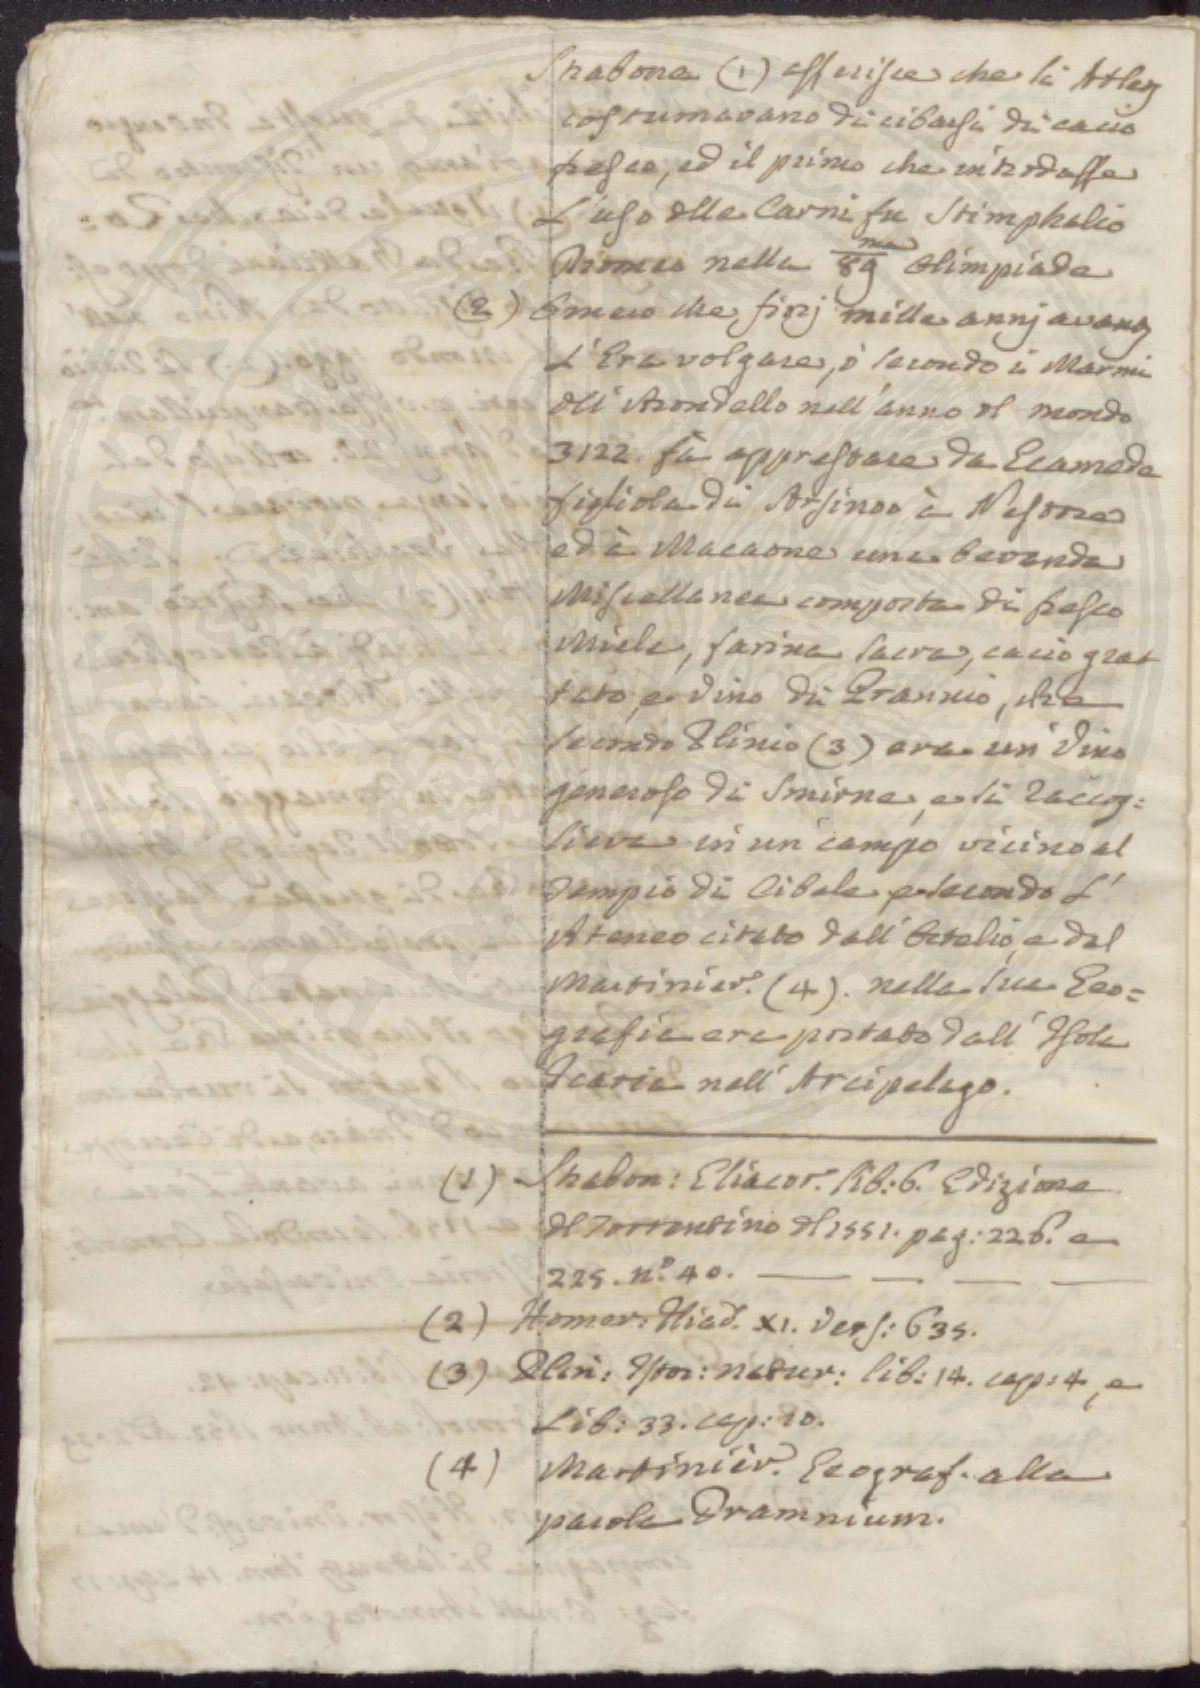 Strabone (1) asserisce che li Atleti
costumavano di cibarsi di cacio
fresco, ed il primo che introdusse
L'uso delle Carni fu Stimphalio
Dromeo nella 89ma Olimpiade
(2) Omero che fiorj mille annj avanti
L'Era volgare, ò secondo i Marmi
dell'Arondello nell'anno del mondo
3122. fà apprestare da Ecamede
figliola di Arsinoo à Nestore
ed à Macaone una bevanda
Miscellanea composta di fresco
Miele, farina sacra, cacio grat
tato, e vino di Prannio, che
secondo Plinio (3) era un' Vino
generoso di Smirne, e si raccog=
lieva in un' campo vicino al
Tempio di Cibele, e secondo L'
Ateneo citato dall'Ortelio, e dal
Martinier. (4). nella sua Geo=
grafia era portato dall'Isola
Icaria nell'Arcipelago.
(1) Strabon: Eliacor. lib: 6. Edizione
del Torrentino del 1551. pag: 226. e
225. n.o 40.
(2) Homer: Iliad. XI. vers: 635.
(3) Plin: Istor: natur: lib: 14. cap: 4, e
Lib: 33. cap: 10.
(4) Martinier. Geograf. alla
parola Pramnium.